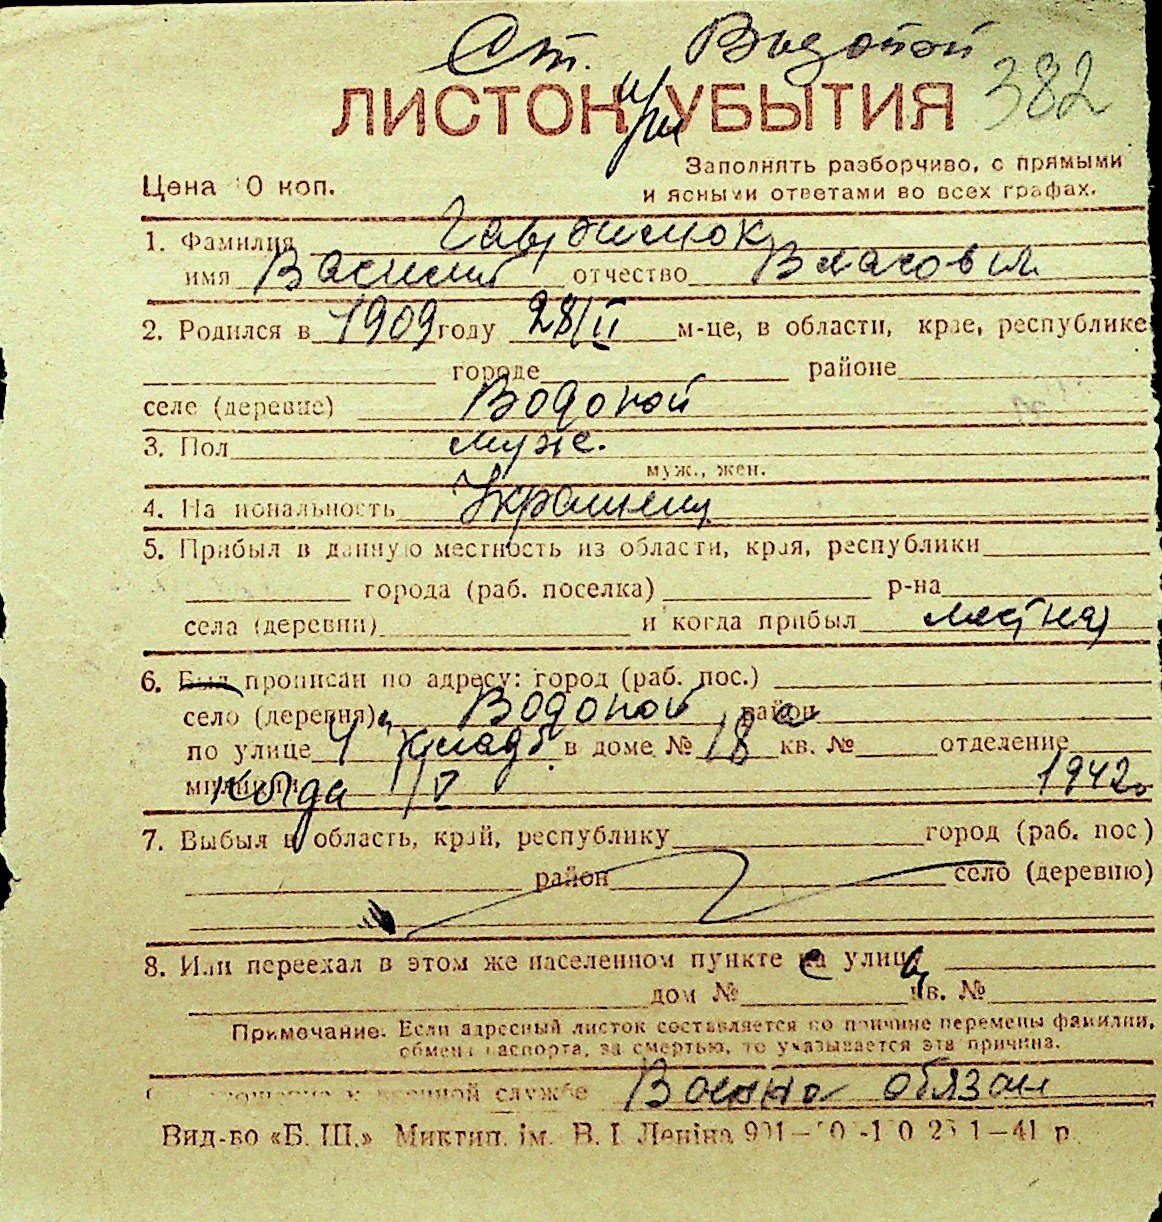 Ст. Водопой
382
ЛИСТОК УБЫТИЯ
при
Заполнять разборчиво, с прямыми
Цена 10 коп.
и ясными ответами во всех графах.
1. Фамилия Гаврилюк
имя Василий отчество Власович
2. Родился в 1909 году 28/II м-це, в области, крае, республике
городе районе
селе (деревне) Водопой
3. Пол муж.
муж., жен.
4. Национальность Украинец
5. Прибыл в данную местность из области, края, республики
города (раб. поселка) р-на
села (деревни) и когда прибыл местный
6. Был прописан по адресу: город (раб. пос.)
село (деревня) Водопой район
по улице 4 в доме № 18 а кв. № отделение
милиции когда 1/V 1942 г.
7. Выбыл в область, край, республику город (раб. пос.)
район село (деревню)
8. Или переехал в этом же населенном пункте на улицу
дом № кв. №
Примечание. Если адресный листок составляется по причине перемены фамилии,
обмена паспорта, за смертью, то указывается эта причина.
Отношение к военной службе Военно обязан
Вид-во «Б. Ш.» Миктип. ім. В. І. Леніна